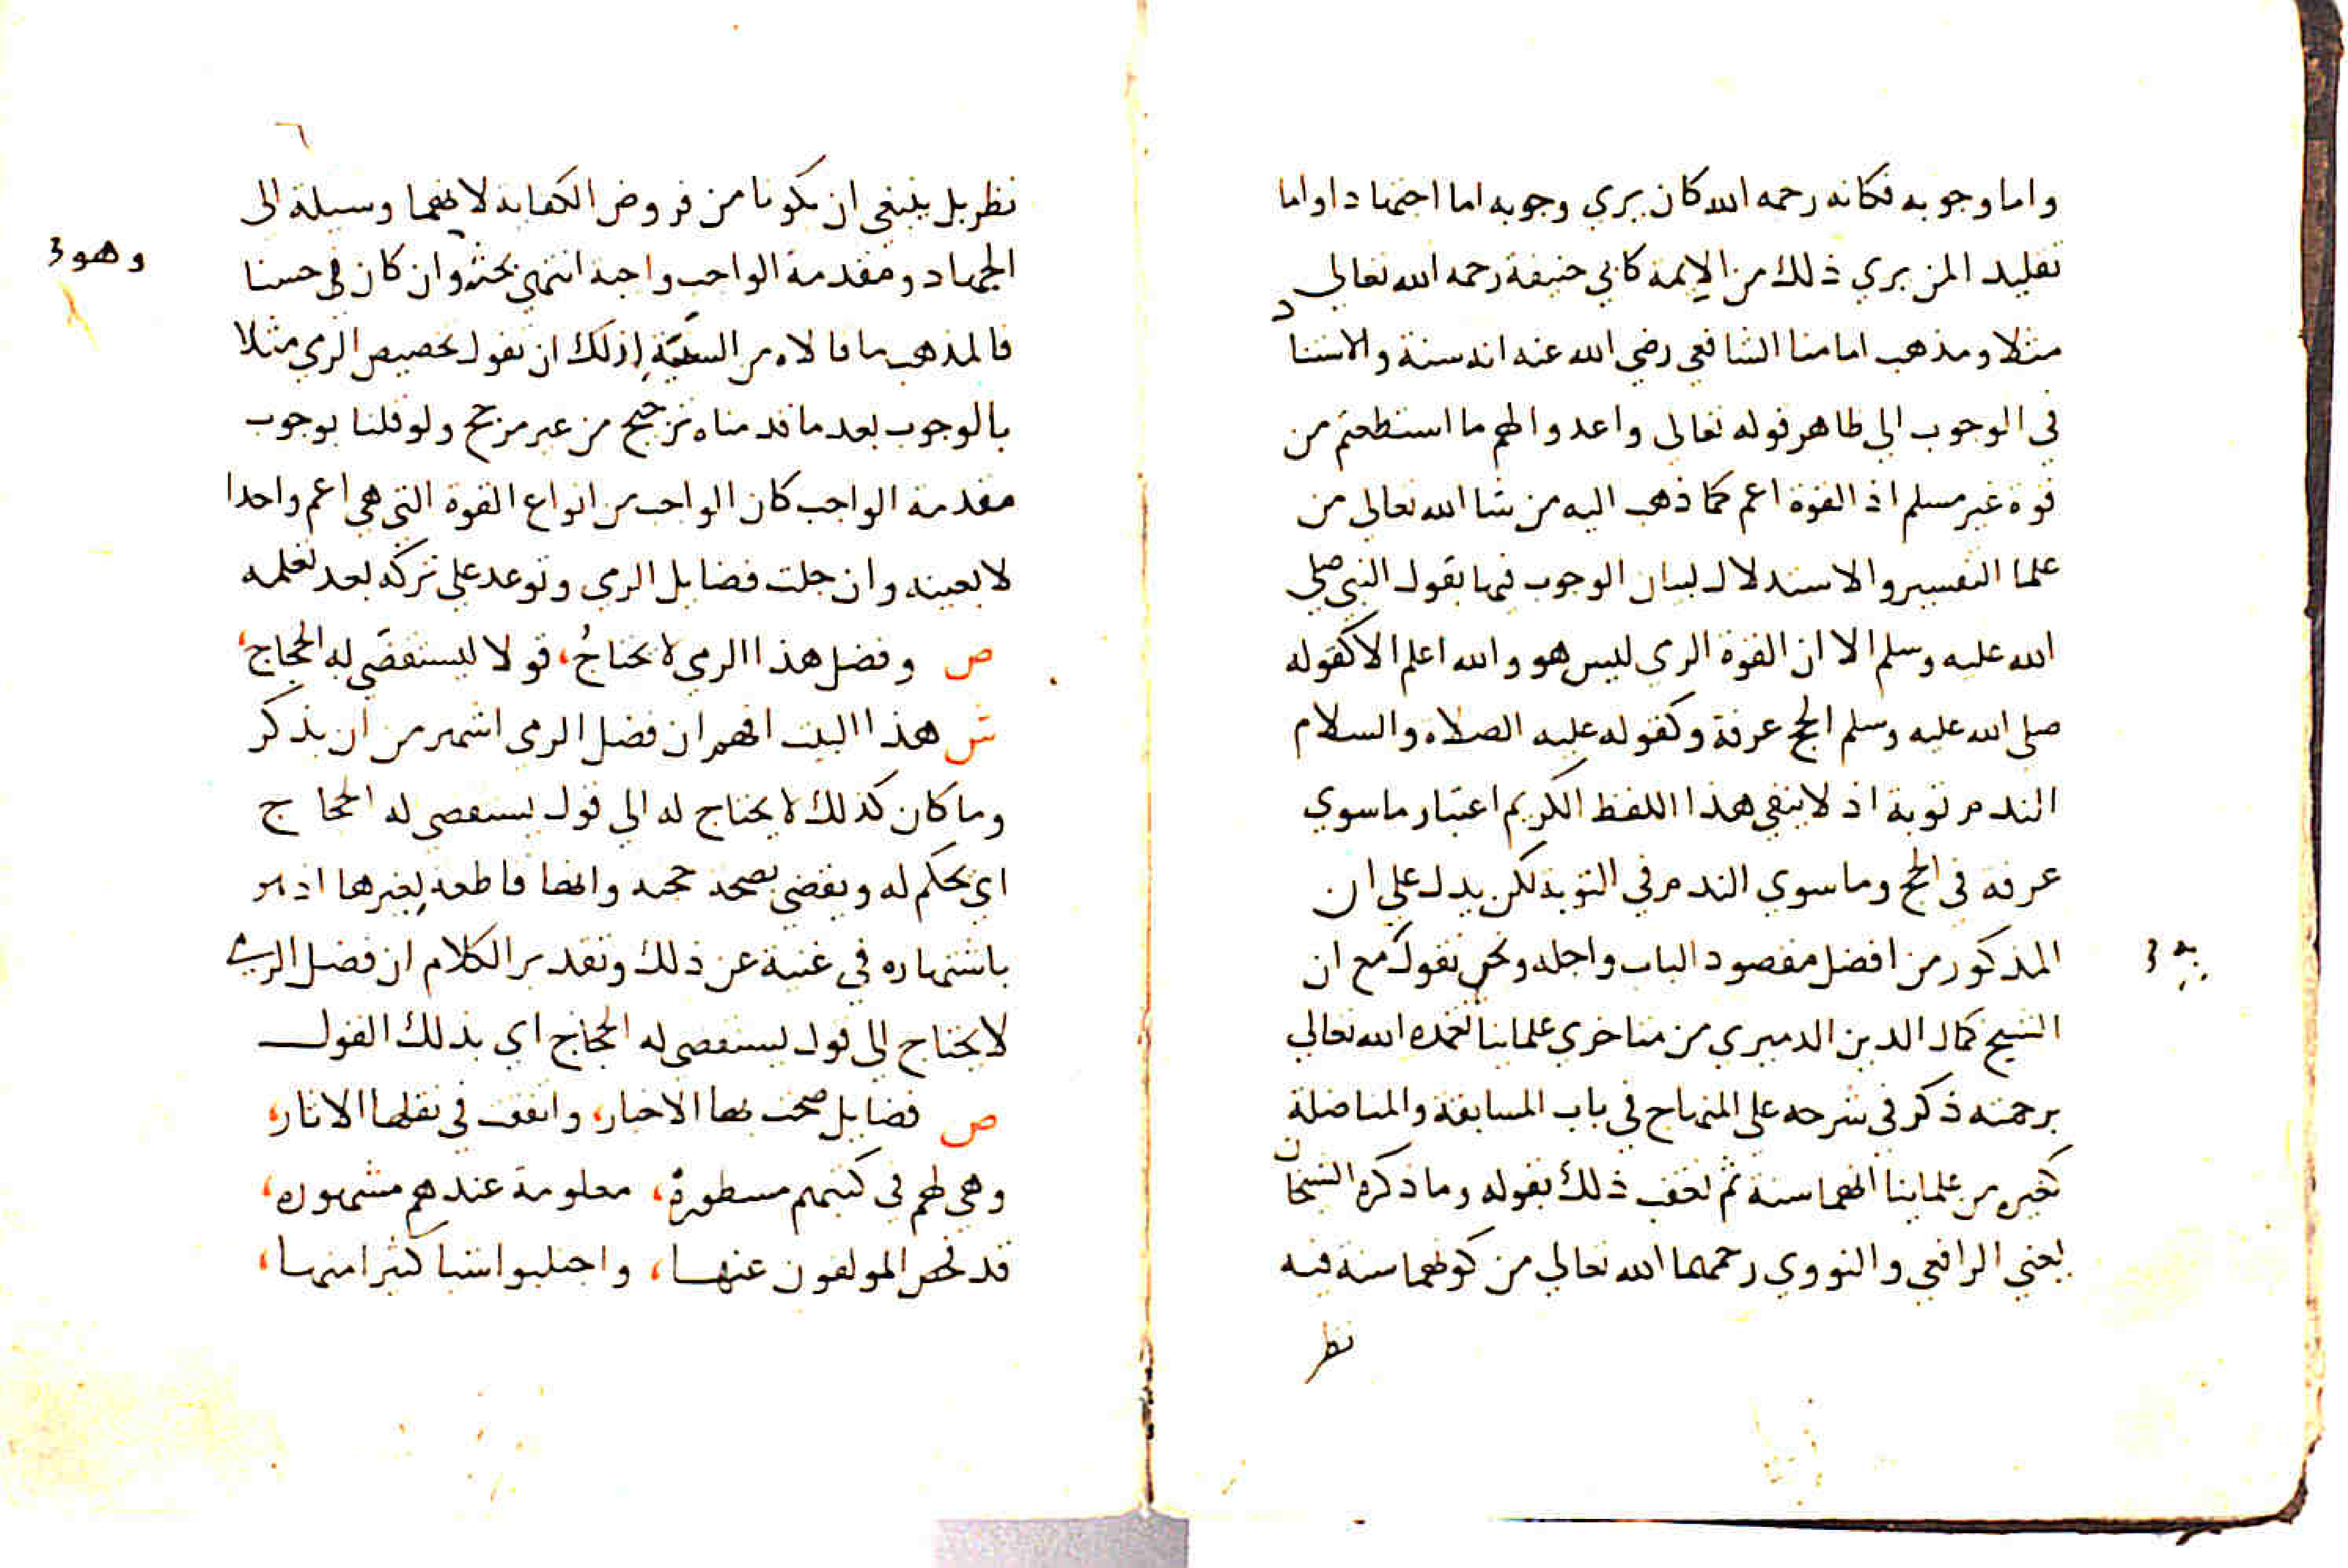 واما وجوبه فكانه رحمه الله كان يري وجوبه اما اجتهادا واما
تقليد المن يري ذلك من الايمة كابي حنيفة رحمه الله تعالي
مثلا ومذهب امامنا الشافعي رضي الله عنه انه سنة والاستناد
في الوجوب الي ظاهر قوله تعالى واعدوا لهم ما استطعتم من
قوة غير مسلم اذ القوة اعم كما ذهب اليه من شا الله تعالي من
علما التفسير والاستدلال لبيان الوجوب فيها بقول النبي صلي
الله عليه وسلم الا ان القوة الرمي ليس هو والله اعلم الا كقوله
صلى الله عليه وسلم الحج عرفة وكقوله عليه الصلاة والسلام
الندم توبة اذ لا ينفي هذا اللفظ الكريم اعتبار ماسوي
عرفه في الحج وماسوي الندم في التوبة لكن يدل علي ان
المذكور من افضل مقصود الباب واجله ونحن نقول مع ان
به 3
الشيخ كمال الدين الدميري من متاخري علماينا تغمده الله تعالي
برحمته ذكر في شرحه على المنهاج في باب المسابقة والمناضلة
كغيره من علماينا انهما سنة ثم تعقب ذلك بقوله وما ذكره الشيخان
يعني الرافعي والنووي رحمهما الله تعالي من كونهما سنة فيه
نظر
٦
نظر بل ينبغي ان يكونا من فروض الكفاية لانهما وسيلة الى
الجهاد ومقدمة الواجب واجبة انتهي بحثه وان كان في حسنا
وهو 3
فالمذهب ما قالاه من السنية اذ لك ان تقول تخصيص الرمي مثلا
بالوجوب بعد ما قدمناه ترجيح من غير مرجح ولو قلنا بوجوب
مقدمة الواجب كان الواجب من انواع القوة التي هي اعم واحدا
لا بعينه وان جلت فضايل الرمي وتوعد علي تركه بعد تعلمه
ص وفضل هذا الرمي لا يحتاج، قولا ليستقضي له الحجاج،
ش هذا البيت افهم ان فضل الرمي اشهر من ان يذكر
وما كان كذلك لا يحتاج له الي قول يستقضى له الحجاج
اي يحكم له ويقضي بصحة حجته وانها قاطعة لغيرها اذ هو
باشتهاره في غنية عن ذلك وتقدير الكلام ان فضل الرمي
لا يحتاج الي قول ليستقضى له الحجاج اي بذلك القول
ص فضايل صحت بها الاخبار، واتفقت في نقلها الاثار،
وهي لهم في كتبهم مسطورة، معلومة عندهم مشهوره،
قد فحص المولفون عنها، واجتلبوا اشيا كثيرا منها،